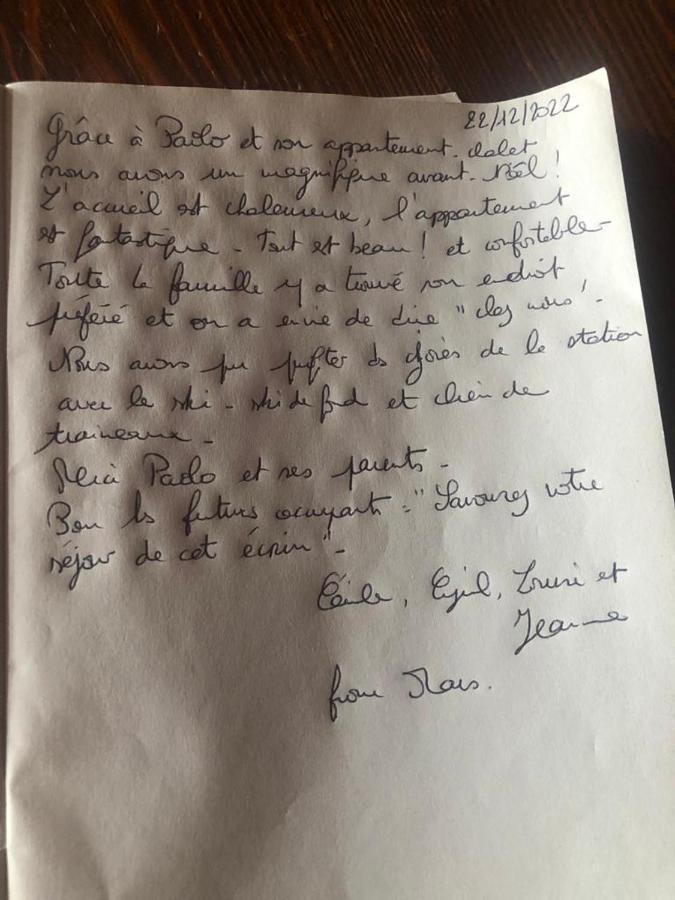 22/12/2022
Grâce à Paolo et son appartement. chalet
nous avons un magnifique avant. Noël !
L'accueil est chaleureux, l'appartement
est fantastique - Tout est beau ! et confortable -
Toute la famille y a trouvé son endroit
préféré et on a envie de dire "chez nous" -
Nous avons pu profiter des de la station
avec le ski - ski de fond et chien de
traineaux -
Merci Paolo et ses parents -
Pour les futurs occupants : "Savourez votre
séjour de cet écrin" -
Cécile, Cyril, et
Jeanne
from